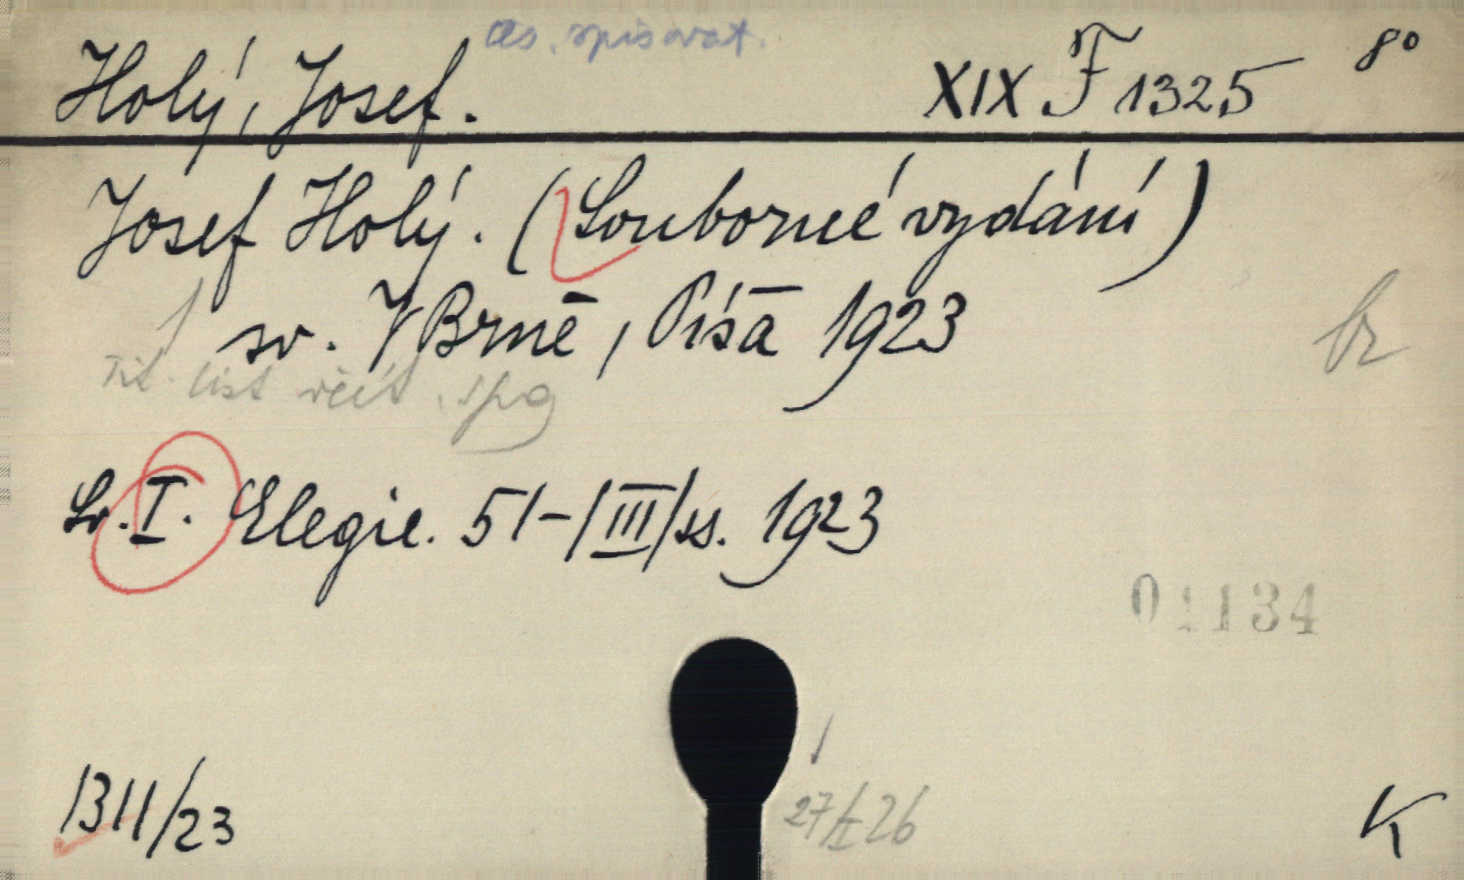 čs. spisovat.
Holý, Josef. XIX F 1325 8°
Josef Holý. (Souborné vydání)
sv. V Brně, Píša 1923
br
Tit. list
Sv. I. Elegie. 51-|III| ss. 1923
01134
1311/23
27/I 26
K